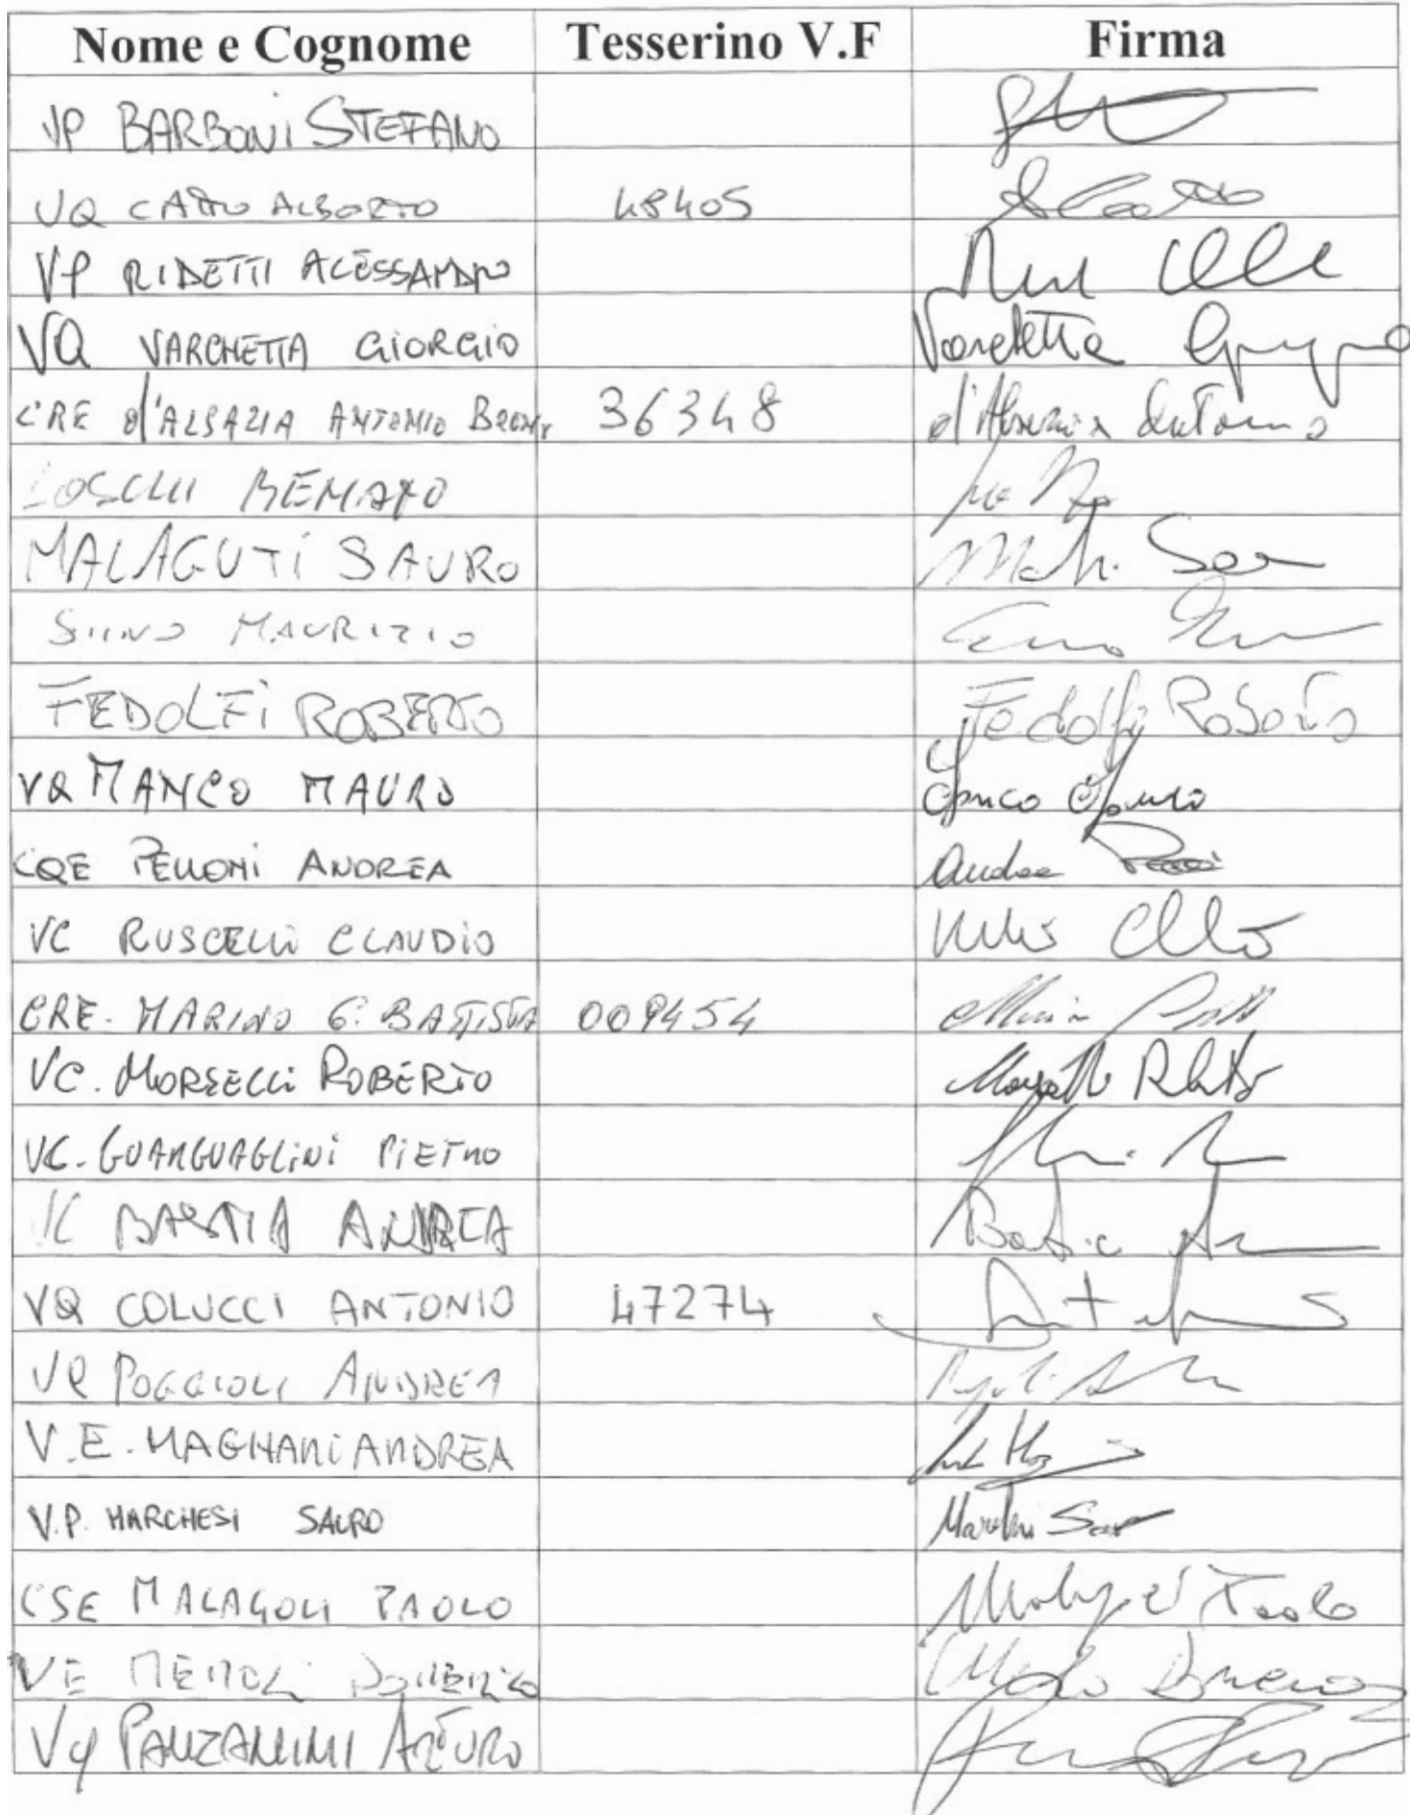 Nome e Cognome Tesserino V.F Firma
VP BARBONI STEFANO
VQ CATTO ALBERTO 48405
VP RIDETTI ALESSANDRO
VQ VARCHETTA GIORGIO Varchetta Giorgio
CRE d'ALSAZIA ANTONIO 36348 d'Alsazia Antonio
LOSCHI RENATO
MALAGUTI SAURO
SIINO MAURIZIO
FEDOLFI ROBERTO Fedolfi Roberto
VQ MANCO MAURO Manco Mauro
CQE PELLONI ANDREA Andrea
VC RUSCELLI CLAUDIO
CRE. MARINO G. BATTISTA 009454
VC. MORSELLI ROBERTO
VC. GUANGUAGLINI PIETRO
VC BASTIA ANDREA Bastia
VQ COLUCCI ANTONIO 47274
VQ POGGIOLI ANDREA
V.E. MAGNANI ANDREA
V.P. MARCHESI SAURO
CSE MALAGOLI PAOLO Paolo
VE MEROLI DOMENICO
VQ PANZANINI ARTURO